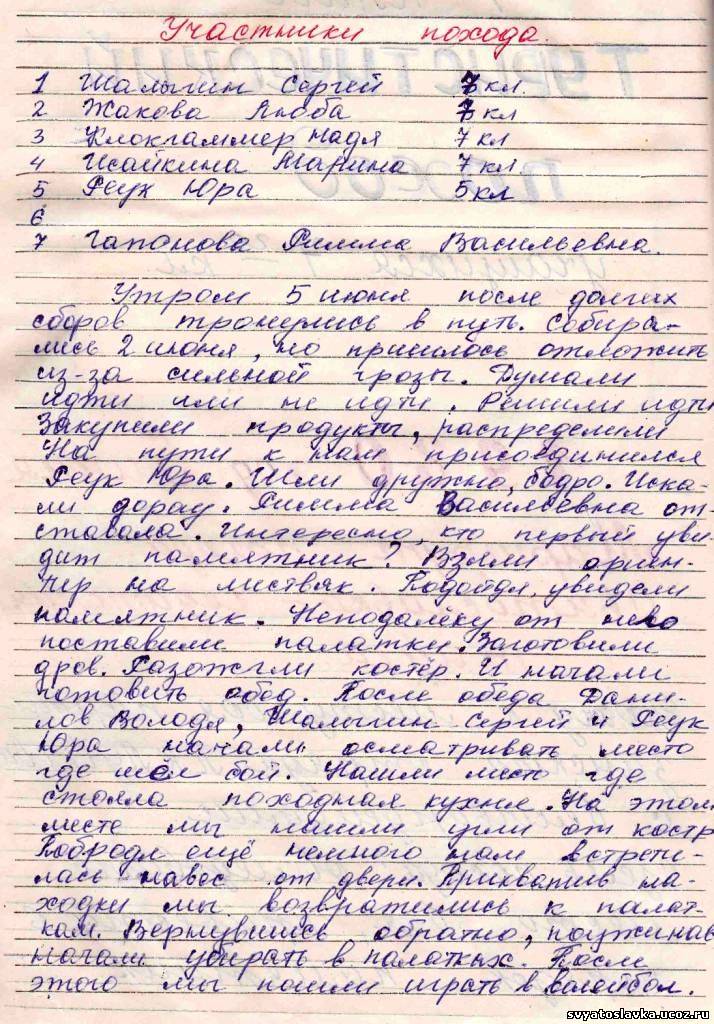 Участники похода.
1 Шалыгин Сергей 7 кл.
2 Жакова Люба 7 кл
3 Клокгаммер Надя 7 кл
4 Исайкина Марина 7 кл
5 Реук Юра 5 кл
6
7 Гапонова Римма Васильевна.
Утром 5 июня после долгих
сборов тронулись в путь. Собира-
лись 2 июня, но пришлось отложить
из-за сильной грозы. Думали
идти или не идти. Решили идти
Закупили продукты, распределили
На пути к нам присоединился
Реук Юра. Шли дружно, бодро. Иска-
ли дорогу. Римма Васильевна от-
ставала. Интересно, кто первый уви-
дит памятник? Взяли ориен-
тир на листвяк. Подойдя, увидели
памятник. Неподалёку от него
поставили палатки. Заготовили
дров. Разожгли костёр. И начали
готовить обед. После обеда Дани-
лов Володя, Шалыгин Сергей и Реук
Юра начали осматривать место
где шёл бой. Нашли место где
стояла походная кухня. На этом
месте мы нашли угли от костр
Побродя ещё немного нам встрети-
лась навес от двери. Прихватив на-
ходки мы возвратились к палат-
кам. Вернувшись обратно, поужинав
начали убирать в палатках. После
этого мы пошли играть в волейбол.
svyatoslavka.ucoz.ru